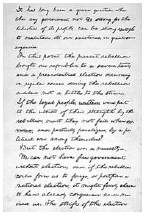 It has long been a grave question whe
ther any government, not too strong for the
liberties of its people, can be strong enough
to maintain its own existence, in great em
ergencies.
On this point the present rebellion
brought our republic to a severe test;
and a presidential election occurring
in regular course during the rebellion
added not a little to the strain.
If the loyal people, united, were put
to the utmost of their strength by the
rebellion, must they not fail when
divided, and partially paralyzed, by a po
litical war among themselves?
But the election was a necessity.
We can not have free government
without elections; and if the rebellion
could force us to forego, or postpone a
national election, it might fairly claim
to have already conquered and ruin
ed us. The strife of the election